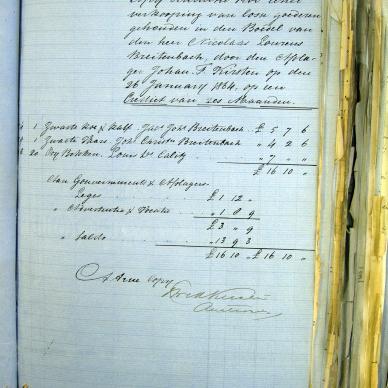 verkooping van losse goederen
gehouden in den Boedel van
den heer Nicolaas Lourens
Breitenbach, door den Afsla-
ger Johan. F Kirsten op den
26 January 1864, op een
Crediet van zes Maanden.
1 Zwarte Koe & Kalf. Jacs Johs Breitenbach £ 5 7 6
1 Zwarte Vaars. Johs Breitenbach " 4 2 6
20 Bokken. Louis " 7 " "
£ 16 10 "
Aan Gouvernements & Afslagers
Leges £ 1 12 "
" Advertentie & " 1 8 9
£ 3 " 9
" Saldo " 13 9 3
£ 16 10 " £ 16 10 "
A true copy